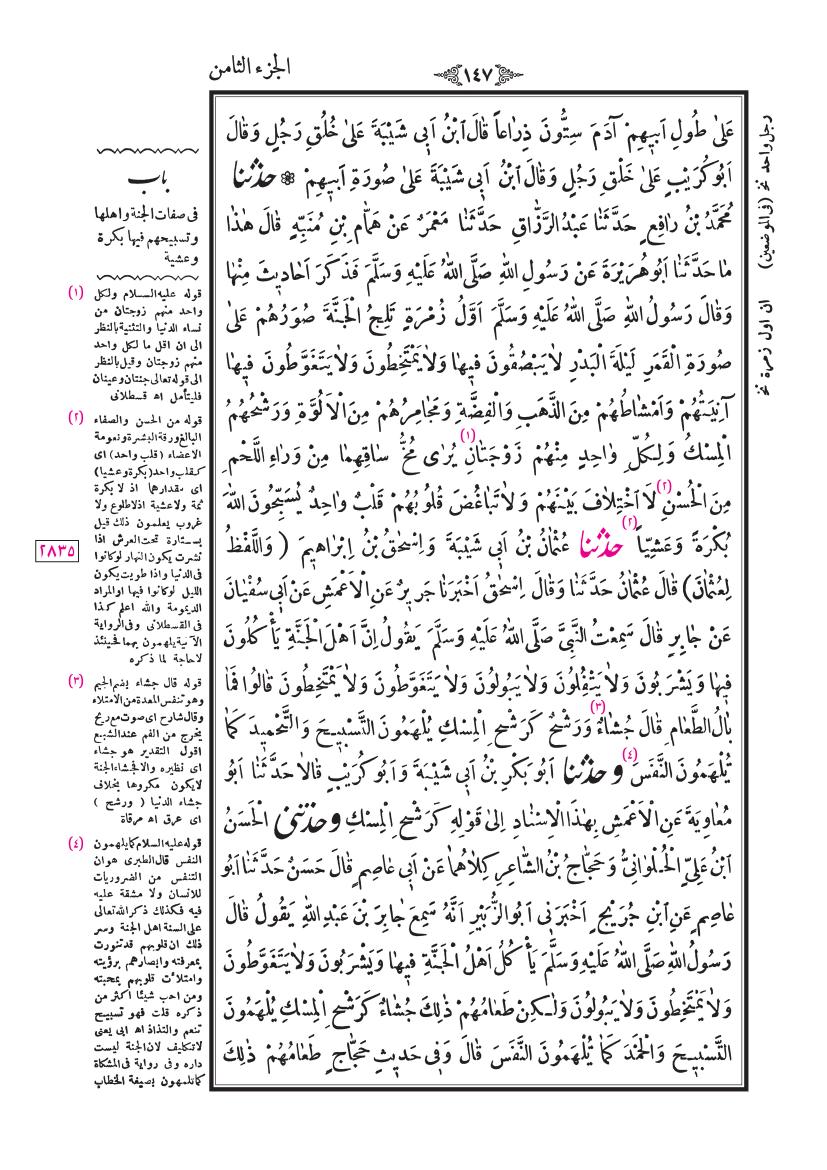 الجزء الثامن
﴿١٤٧﴾
عَلىٰ طُولِ اَبيهِمْ آدَمَ سِتُّونَ ذِرَاعاً قَالَ ابْنُ اَبي شَيْبَةَ عَلىٰ خُلُقِ رَجُلٍ وَقَالَ
اَبُوكُرَيْبٍ عَلىٰ خَلْقِ رَجُلٍ وَقَالَ ابْنُ اَبي شَيْبَةَ عَلىٰ صُورَةِ اَبيهِمْ ❁ حدثنا
مُحَمَّدُ بْنُ رَافِعٍ حَدَّثَنَا عَبْدُ الرَّزَّاقِ حَدَّثَنَا مَعْمَرٌ عَنْ هَمَّامِ بْنِ مُنَبِّهٍ قَالَ هٰذَا
مَا حَدَّثَنَا اَبُوهُرَيْرَةَ عَنْ رَسُولِ اللهِ صَلَّى اللهُ عَلَيْهِ وَسَلَّمَ فَذَكَرَ اَحَاديثَ مِنْهَا
وَقَالَ رَسُولُ اللهِ صَلَّى اللهُ عَلَيْهِ وَسَلَّمَ اَوَّلُ زُمْرَةٍ تَلِجُ الْجَنَّةَ صُوَرُهُمْ عَلىٰ
صُورَةِ الْقَمَرِ لَيْلَةَ الْبَدْرِ لاَيَبْصُقُونَ فيهَا وَلاَيَمْتَخِطُونَ وَلاَيَتَغَوَّطُونَ فيهَا
آنِيَتُهُمْ وَاَمْشَاطُهُمْ مِنَ الذَّهَبِ وَالْفِضَّةِ وَمَجَامِرُهُمْ مِنَ الْاَلُوَّةِ وَرَشْحُهُمُ
الْمِسْكُ وَلِكُلِّ وَاحِدٍ مِنْهُمْ زَوْجَتَانِ (١) يُرٰى مُخُّ سَاقِهِمَا مِنْ وَرَاءِ اللَّحْمِ
مِنَ الْحُسْنِ (٢) لاَ اخْتِلاَفَ بَيْنَهُمْ وَلاَ تَبَاغُضَ قُلُوبُهُمْ قَلْبٌ وَاحِدٌ يُسَبِّحُونَ اللهَ
بُكْرَةً وَعَشِيّاً (٢) حدثنا عُثْمَانُ بْنُ اَبي شَيْبَةَ وَاِسْحٰقُ بْنُ اِبْرَاهيمَ ( وَاللَّفْظُ
لِعُثْمَانَ) قَالَ عُثْمَانُ حَدَّثَنَا وَقَالَ اِسْحٰقُ اَخْبَرَنَا جَريرٌ عَنِ الْاَعْمَشِ عَنْ اَبي سُفْيَانَ
عَنْ جَابِرٍ قَالَ سَمِعْتُ النَّبِيَّ صَلَّى اللهُ عَلَيْهِ وَسَلَّمَ يَقُولُ اِنَّ اَهْلَ الْجَنَّةِ يَأْكُلُونَ
فيهَا وَيَشْرَبُونَ وَلاَيَتْفُِلُونَ وَلاَيَبُولُونَ وَلاَيَتَغَوَّطُونَ وَلاَيَمْتَخِطُونَ قَالُوا فَمَا
بَالُ الطَّعَامِ قَالَ جُشَاءٌ (٣) وَرَشْحٌ كَرَشْحِ الْمِسْكِ يُلْهَمُونَ التَّسْبيحَ وَالتَّحْميدَ كَمَا
تُلْهَمُونَ النَّفَسَ (٤) وحدثنا اَبُو بَكْرِ بْنُ اَبي شَيْبَةَ وَاَبُو كُرَيْبٍ قَالاَ حَدَّثَنَا اَبُو
مُعَاوِيَةَ عَنِ الْاَعْمَشِ بِهٰذَا الْاِسْنَادِ اِلىٰ قَوْلِهِ كَرَشْحِ الْمِسْكِ وحدثني الْحَسَنُ
ابْنُ عَلِيٍّ الْحُلْوَانِيُّ وَحَجَّاجُ بْنُ الشَّاعِرِ كِلاَهُمَا عَنْ اَبي عَاصِمٍ قَالَ حَسَنٌ حَدَّثَنَا اَبُو
عَاصِمٍ عَنِ ابْنِ جُرَيْجٍ اَخْبَرَني اَبُو الزُّبَيْرِ اَنَّهُ سَمِعَ جَابِرَ بْنَ عَبْدِ اللهِ يَقُولُ قَالَ
رَسُولُ اللهِ صَلَّى اللهُ عَلَيْهِ وَسَلَّمَ يَأْكُلُ اَهْلُ الْجَنَّةِ فيهَا وَيَشْرَبُونَ وَلاَيَتَغَوَّطُونَ
وَلاَيَمْتَخِطُونَ وَلاَيَبُولُونَ وَلٰكِنْ طَعَامُهُمْ ذٰلِكَ جُشَاءٌ كَرَشْحِ الْمِسْكِ يُلْهَمُونَ
التَّسْبيحَ وَالْحَمْدَ كَمَا يُلْهَمُونَ النَّفَسَ قَالَ وَفي حَديثِ حَجَّاجٍ طَعَامُهُمْ ذٰلِكَ
رجل واحد نخ (فى الموضعين)
ان اول زمرة نخ
باب
فى صفات الجنة واهلها
وتسبيحهم فيها بكرة
وعشية
(١) قوله عليه السلام ولكل
واحد منهم زوجتان من
نساء الدنيا والتثنية بالنظر
الى ان اقل ما لكل واحد
منهم زوجتان وقيل بالنظر
الى قوله تعالى جنتان وعينان
فليتأمل اه قسطلانى
(٢) قوله من الحسن والصفاء
البالغ ورقة البشرة ونعومة
الاعضاء (قلب واحد) اى
كقلب واحد (بكرة وعشيا)
اى مقدارهما اذ لا بكرة
ثمة ولا عشية اذ لا طلوع ولا
غروب يعلمون ذلك قيل
بستارة تحت العرش اذا
نشرت يكون النهار لو كانوا
فى الدنيا واذا طويت يكون
الليل لو كانوا فيها او المراد
الديمومة والله اعلم كذا
فى القسطلانى وفى الرواية
الآتية يلهمون بهما فحينئذ
لاحاجة لما ذكره
٢٨٣٥
(٣) قوله قال جشاء بضم الجيم
وهو تنفس المعدة من الامتلاء
وقال شارح اى صوت مع ريح
يخرج من الفم عند الشبع
اقول التقدير هو جشاء
اى نظيره والا فجشاء الجنة
لايكون مكروها بخلاف
جشاء الدنيا ( ورشح )
اى عرق اه مرقاة
(٤) قوله عليه السلام كما يلهمون
النفس قال الطبرى هو ان
التنفس من الضروريات
للانسان ولا مشقة عليه
فيه فكذلك ذكر الله تعالى
على السنة اهل الجنة وسر
ذلك ان قلوبهم قد تنورت
بمعرفته وابصارهم برؤيته
وامتلأت قلوبهم بمحبته
ومن احب شيئا اكثر من
ذكره قلت فهو تسبيح
تنعم والتذاذ اه ابى يعنى
لا تكليف لان الجنة ليست
داره وفى رواية فى المشكاة
كما تلهمون بصيغة الخطاب